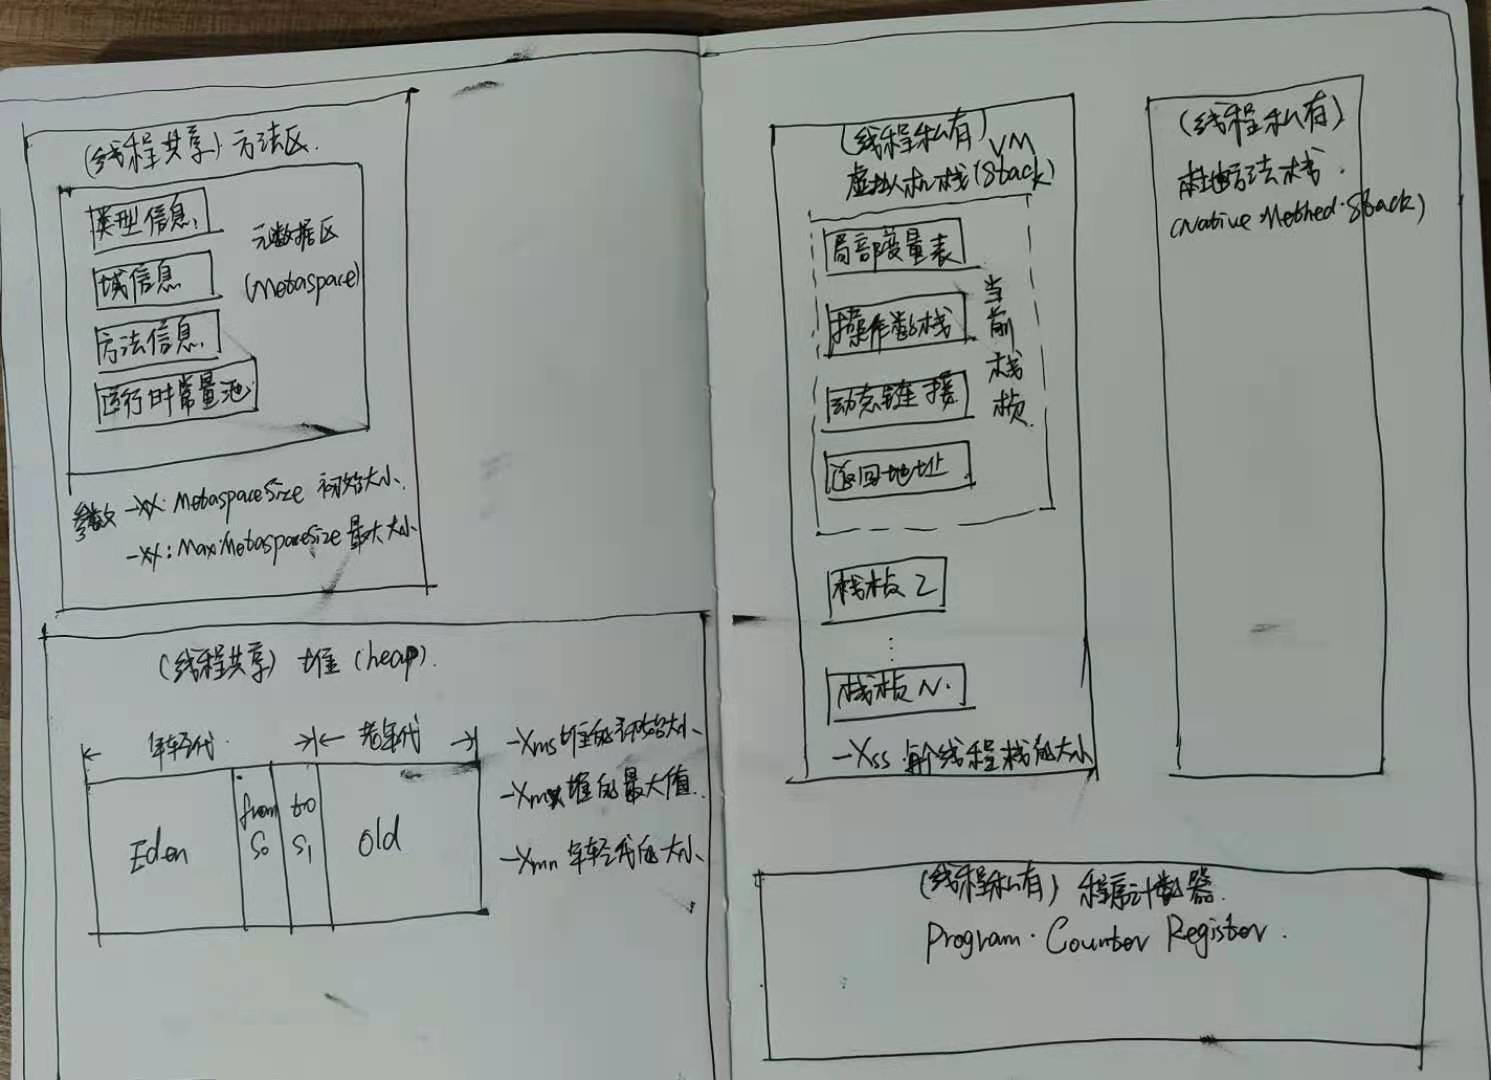 (线程共享) 方法区.
类型信息,
域信息
方法信息,
运行时常量池
元数据区
(Metaspace)
参数 -XX: MetaspaceSize 初始大小.
-XX: MaxMetaspaceSize 最大大小
(线程共享) 堆 (heap).
年轻代.
老年代
Eden
from
S0
to
S1
old
-Xms 堆的初始大小
-Xmx 堆的最大值.
-Xmn 年轻代的大小
(线程私有)
VM
虚拟机栈(Stack)
局部变量表
操作数栈
动态链接
返回地址
当前栈帧
栈帧 2
⋮
栈帧 N.
-Xss 每个线程栈的大小
(线程私有)
本地方法栈.
(Native Method Stack)
(线程私有) 程序计数器.
Program. Counter Register.